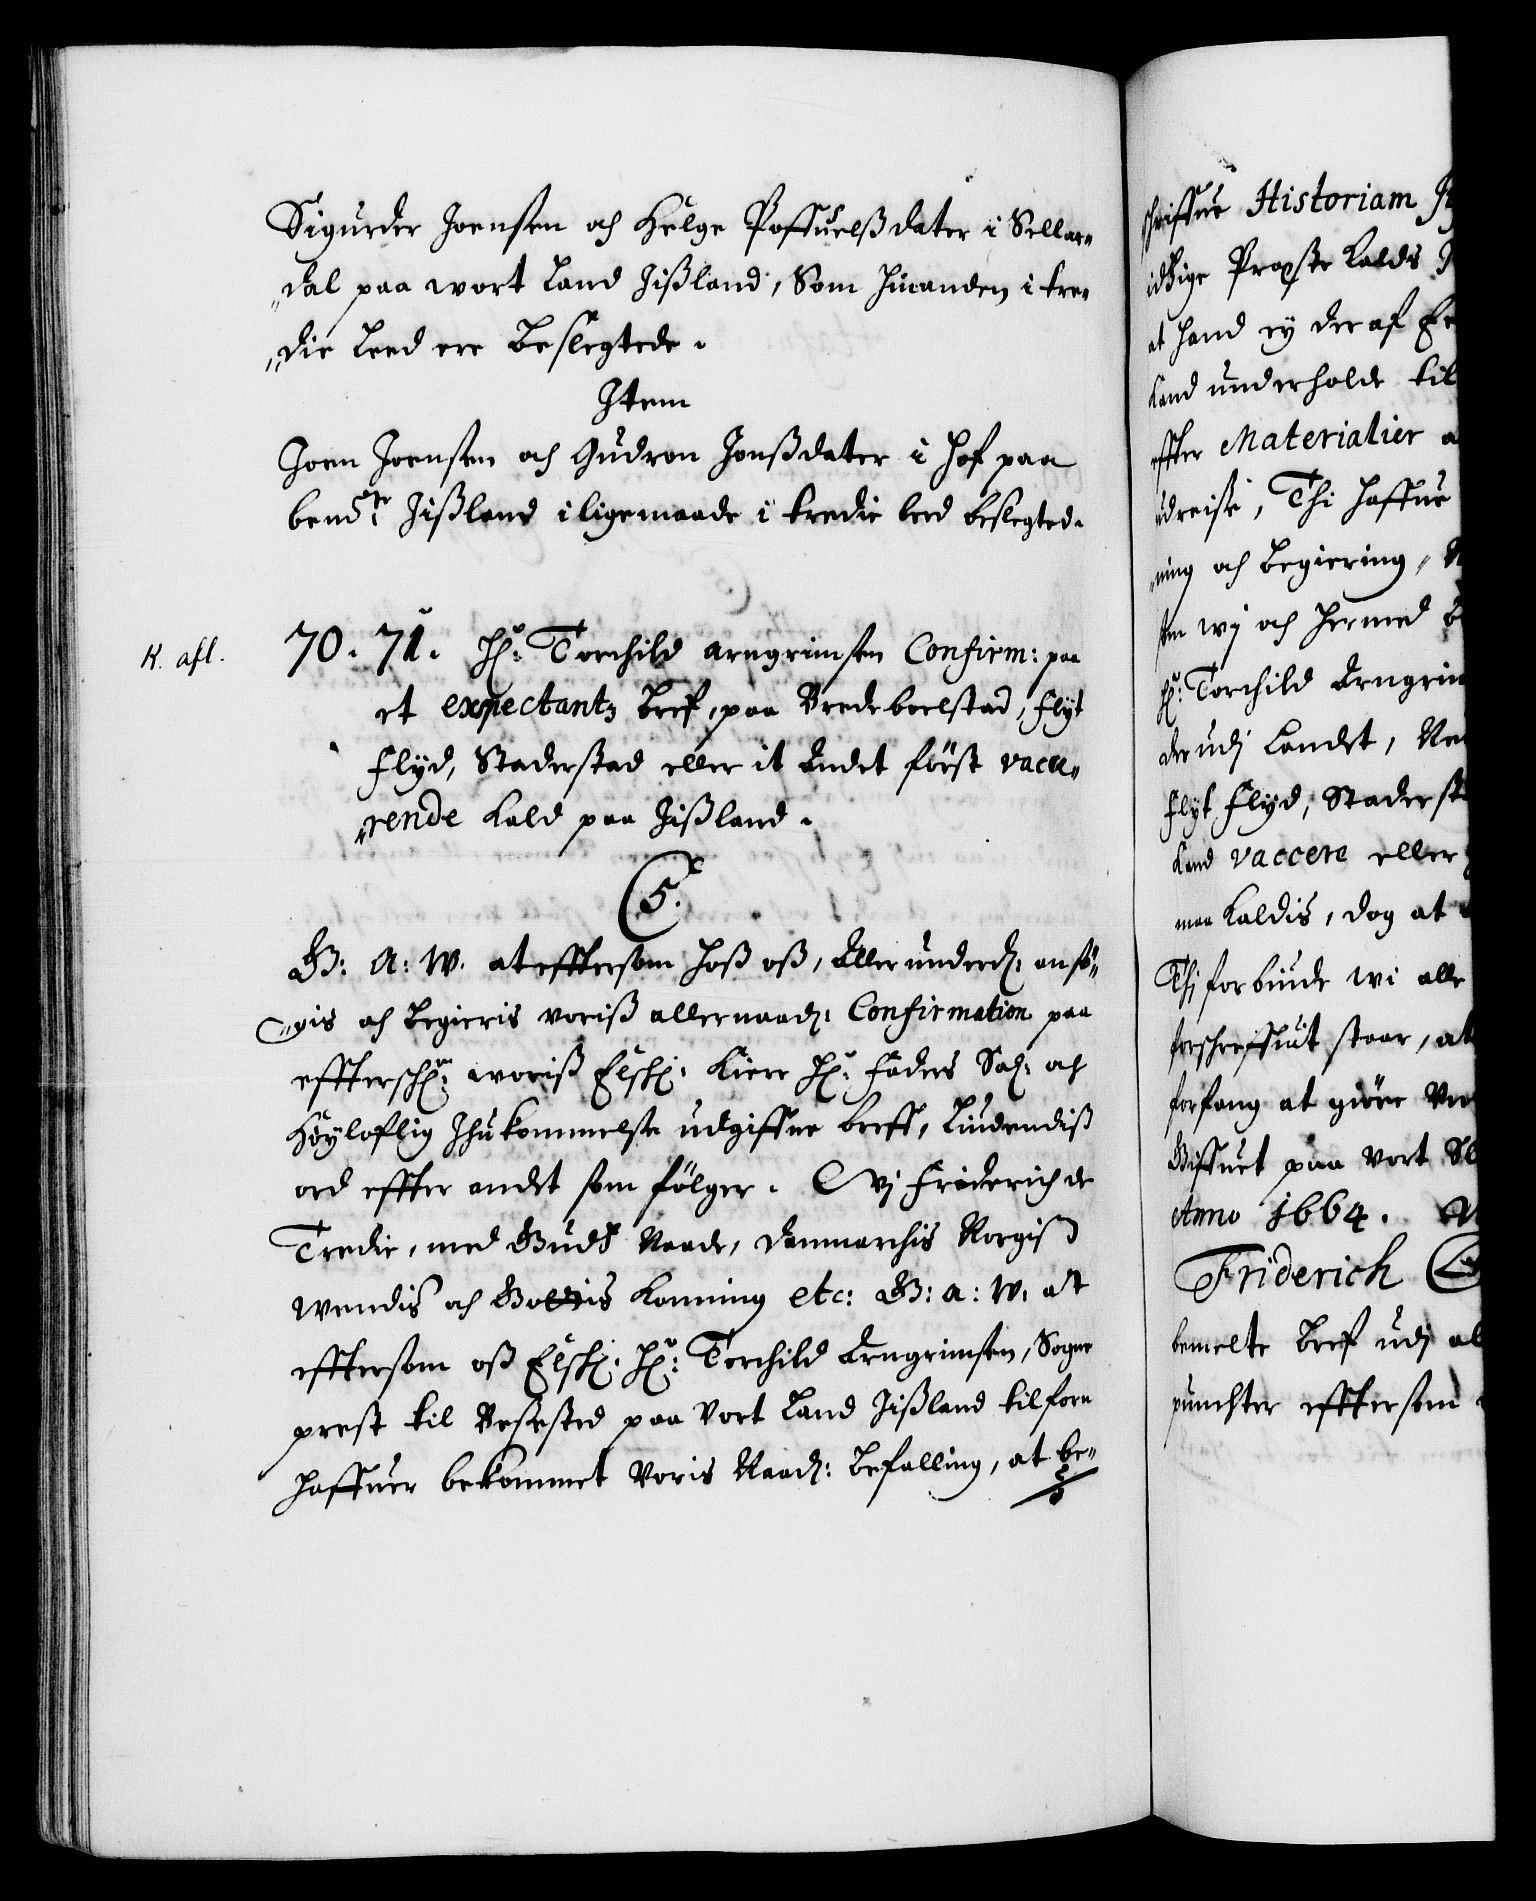 Sigurder Joensen och Helge Poffuelsdater i Sellar„
„dal paa wort Land Jißland, Som hinanden i tre„
„die Leed ere Beslegtede.
Item
Joen Joensen och Gudron Jonßdater i Hof paa
bemte: Jißland iligemaade i tredie leed beslegted.
K. afl.
70. 71. Hr: Torchild Arngrimsen Confirm: paa
et expectantz Bref, paa Bredeboelstad, Flyt
Flyd, Staderstad eller it Andet først vace„
„rende Kald paa Jißland.
C5.
G: A: W. at efftersom hoß oß, Allerunderd: ansø„
„gis och begieris voriß allernaad: Confirmation paa
effterschne: woriß Elskl: Kiere Hr: Faders Sal: och
Høyloflig Ihukommelse udgiffne breff, Liudendiß
ord effter andet som følger. Wj Friderich de
Tredie, med Guds Naade, Danmarchis Norgiß
Wendis och Gottis Konning etc: G: a: W. at
efftersom oß Elskl. Hr: Torchild Arngrimsen, Sogne
prest til Besested paa Vort Land Jißland tilforn
haffuer bekommet Voris Naad: befalling, at be„
schriffue Historiam
idtzige Propste Kalds
at hand ey deraf
Land underholde til
effter Materialier
udreise, Thi haffue
„ning och Begiering,
som wj och hermed
Hr: Torchild Arngrim
der udj Landet,
Flyt Flyd, Staderst
Kand vaccere eller
maa Kaldis, dog at
Thj forbiude wi alle
forschreffuit staar, at
forfang at giøre
Giffuet paa Vort Sl
Anno 1664.
Friderich
bemelte Bref udj al
punchter efftersom